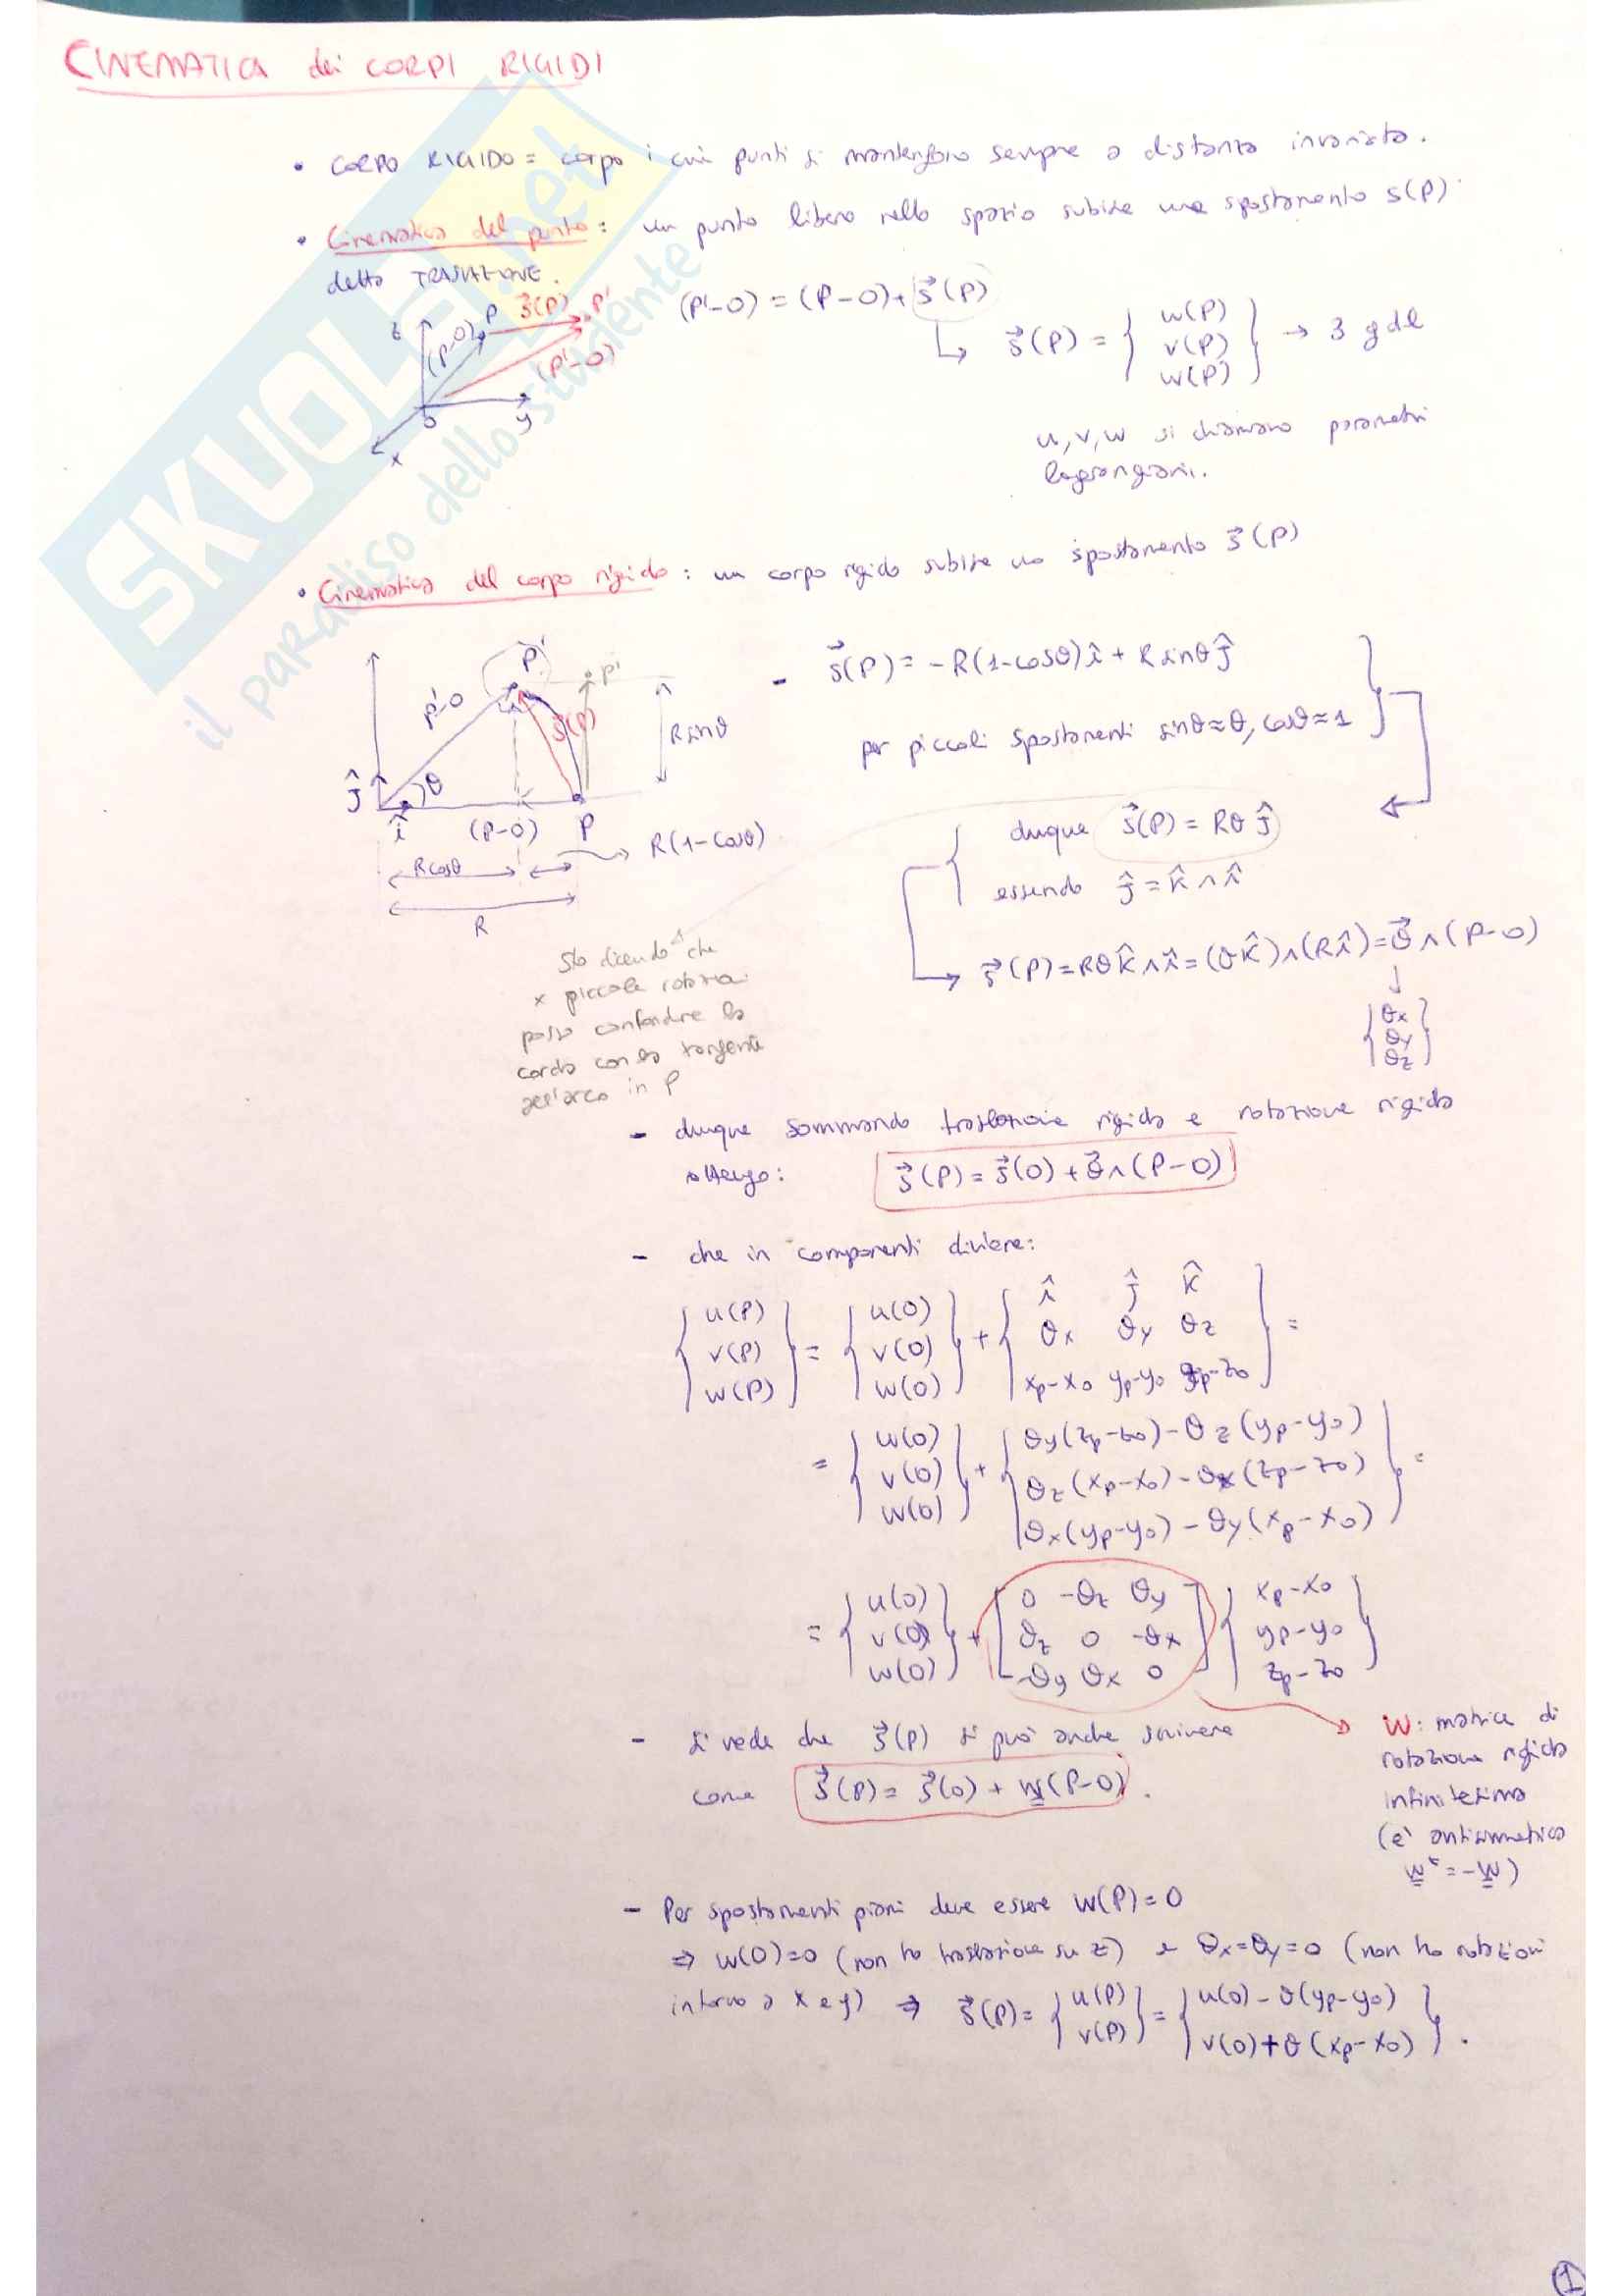 CINEMATICA dei CORPI RIGIDI
• CORPO RIGIDO = corpo i cui punti si mantengono sempre a distanza invariata.
• Cinematica del punto: un punto libero nello spazio subisce uno spostamento s(P)
detto TRASLAZIONE.
(P'-O) = (P-O) + s⃗(P)
z P s⃗(P) P'
(P-O) (P'-O)
O y
x
↳ s⃗(P) = { w(P) v(P) w(P) } → 3 gdl
u, v, w si chiamano parametri
lagrangiani.
• Cinematica del corpo rigido: un corpo rigido subisce uno spostamento s⃗(P)
P' P'
P'-O s⃗(P) R sinθ
ĵ θ
î (P-O) P
R cosθ R(1-cosθ)
R
- s⃗(P) = -R(1-cosθ)î + R sinθ ĵ
per piccoli spostamenti sinθ≈θ, cosθ≈1
dunque s⃗(P) = Rθ ĵ
essendo ĵ = k̂ ∧ î
→ s⃗(P) = Rθ k̂ ∧ î = (θk̂) ∧ (Rî) = θ⃗ ∧ (P-O)
{ θx θy θz }
Sto dicendo che
x piccole rotaz.
posso confondere la
corda con la tangente
all'arco in P
- dunque sommando traslazione rigida e rotazione rigida
ottengo: s⃗(P) = s⃗(O) + θ⃗ ∧ (P-O)
- che in componenti diviene:
{ u(P) v(P) w(P) } = { u(O) v(O) w(O) } + { î ĵ k̂
θx θy θz
xp-xo yp-yo zp-zo } =
= { u(O) v(O) w(O) } + { θy(zp-zo) - θz(yp-yo)
θz(xp-xo) - θx(zp-zo)
θx(yp-yo) - θy(xp-xo) } =
= { u(O) v(O) w(O) } + [ 0 -θz θy
θz 0 -θx
-θy θx 0 ] { xp-xo yp-yo zp-zo }
- si vede che s⃗(P) si può anche scrivere
come s⃗(P) = s⃗(O) + W(P-O).
W: matrice di
rotazione rigida
infinitesima
(è antisimmetrica
Wᵗ = -W)
- Per spostamenti piani deve essere w(P) = 0
⇒ w(O)=0 (non ho traslazione su z) e θx=θy=0 (non ho rotazioni
intorno a x e y) ⇒ s⃗(P) = { u(P) v(P) } = { u(O) - θ(yp-yo)
v(O) + θ(xp-xo) }.
1
SKUOLA.net
il paradiso dello studente